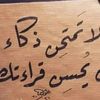 لا تمتحن ذكاء
يُحسن قراءتك